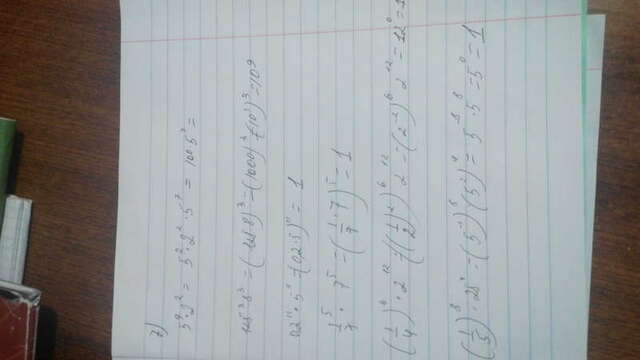 7)
5⁴·2² = 5²·2²·5² = 100·5² =
125³·8³ = (125·8)³ = (1000)³ = (10³)³ = 10⁹
0,2¹¹·5¹¹ = (0,2·5)¹¹ = 1
1/7⁵ · 7⁵ = (1/7 · 7)⁵ = 1
(1/4)⁶ · 2¹² = ((1/2)²)⁶ 2¹² = (2⁻²)⁶ 2¹² = 12⁰ = 1
(1/5)⁸ · 25⁴ = (5⁻¹)⁸ (5²)⁴ = 5⁻⁸ · 5⁸ = 5⁰ = 1